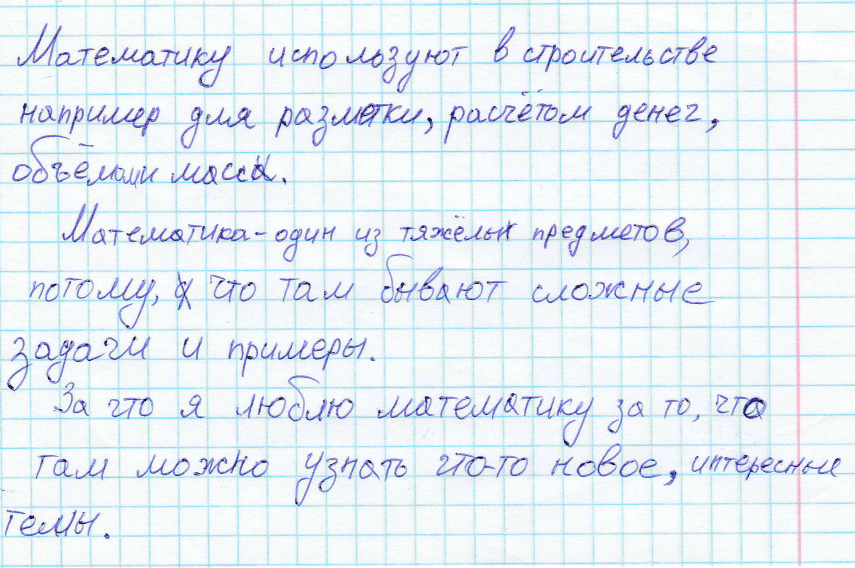 Математику используют в строительстве
например для разметки, расчётом денег,
объёмами масса.
Математика - один из тяжёлых предметов,
потому, что там бывают сложные
задачи и примеры.
За что я люблю математику за то, что
там можно узнать что-то новое, интересные
темы.